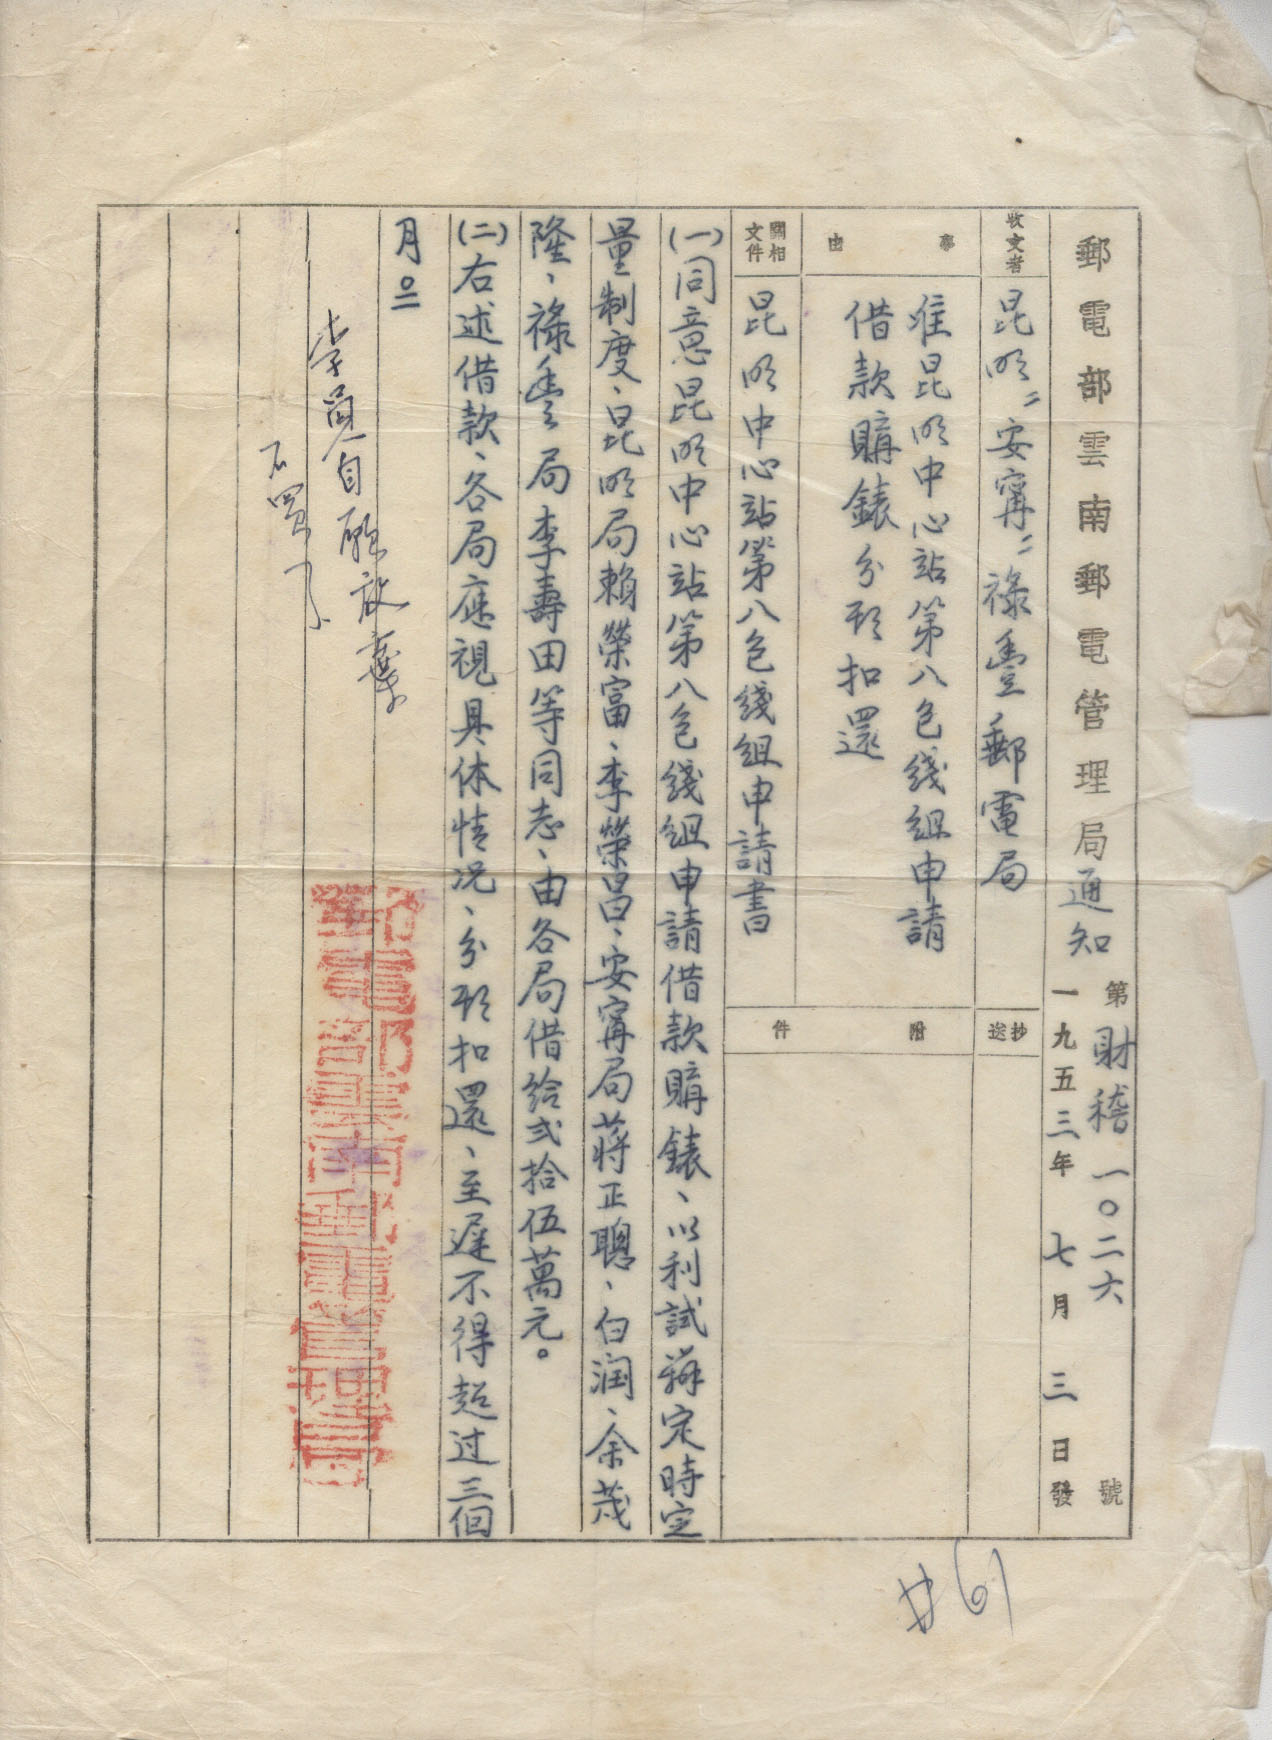 郵電部雲南郵電管理局通知
第財稽一〇二六號
一九五三年七月三日發
收文者
昆明、安寧、祿豐郵電局
抄送
事由
准昆明中心站第八包綫組申請
借款購錶分期扣還
附件
相關文件
昆明中心站第八包綫組申請書
(一)同意昆明中心站第八包綫組申請借款購錶、以利試辦定時定
量制度、昆明局賴榮富、李榮昌、安寧局蔣正聰、白润、余茂
隆、祿豐局李壽田等同志、由各局借給弍拾伍萬元。
(二)右述借款、各局應視具体情況、分期扣還、至遲不得超过三個
月。
李員自願放棄
不買了
郵電部雲南郵電管理局
#61